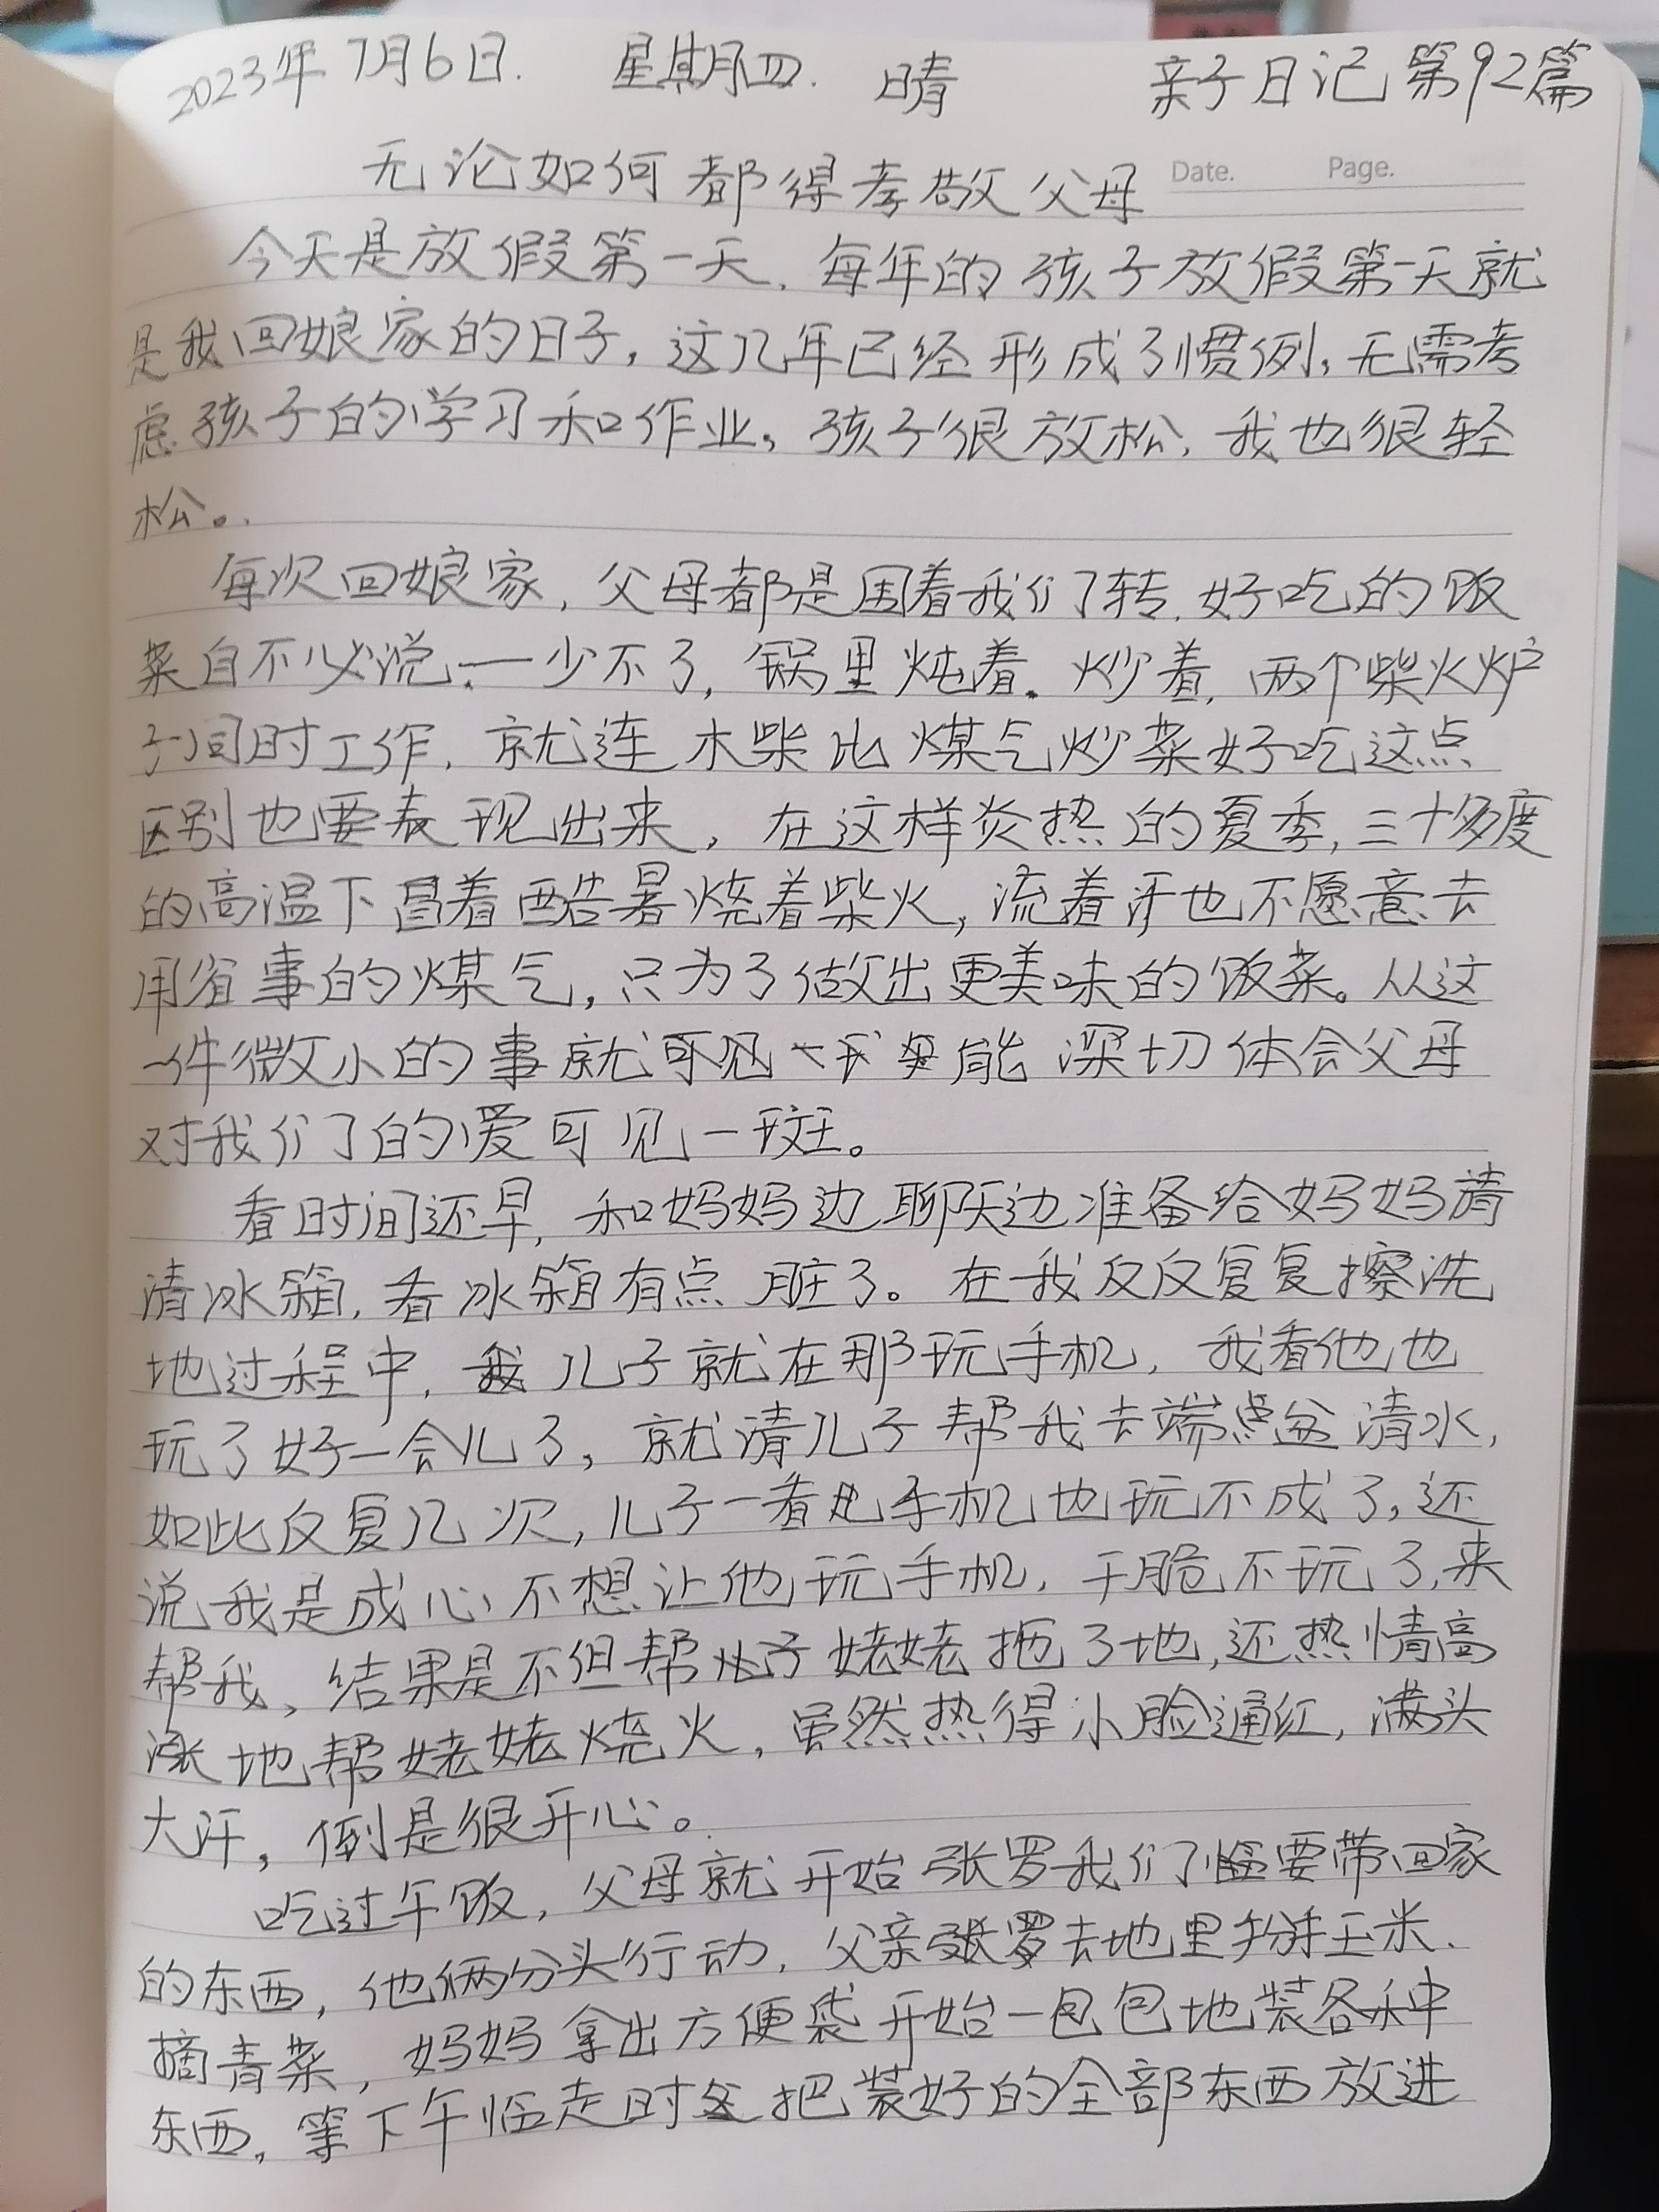 2023年7月6日. 星期四. 晴 亲子日记第92篇
无论如何都得孝敬父母
Date. Page.
今天是放假第一天，每年的孩子放假第一天就
是我回娘家的日子，这几年已经形成了惯例，无需考
虑孩子的学习和作业，孩子很放松，我也很轻
松。
每次回娘家，父母都是围着我们转，好吃的饭
菜自不必说，一少不了，锅里炖着，炒着，两个柴火炉
子同时工作，就连木柴比煤气炒菜好吃这点
区别也要表现出来，在这样炎热的夏季，三十多度
的高温下冒着酷暑烧着柴火，流着汗也不愿意去
用省事的煤气，只为了做出更美味的饭菜。从这
一件微小的事就可见一能深切体会父母
对我们的爱可见一斑。
看时间还早，和妈妈边聊天边准备给妈妈清
清冰箱，看冰箱有点脏了。在我反反复复擦洗
地过程中，我儿子就在那玩手机，我看他也
玩了好一会儿了，就请儿子帮我去端点盆清水，
如此反复几次，儿子一看手机也玩不成了，还
说我是成心不想让他玩手机，干脆不玩了，来
帮我，结果是不但帮姥姥拖了地，还热情高
涨地帮姥姥烧火，虽然热得小脸通红，满头
大汗，倒是很开心。
吃过午饭，父母就开始张罗我们临要带回家
的东西，他俩分头行动，父亲张罗去地里掰玉米、
摘青菜，妈妈拿出方便袋开始一包包地装各种
东西，等下午临走时把装好的全部东西放进